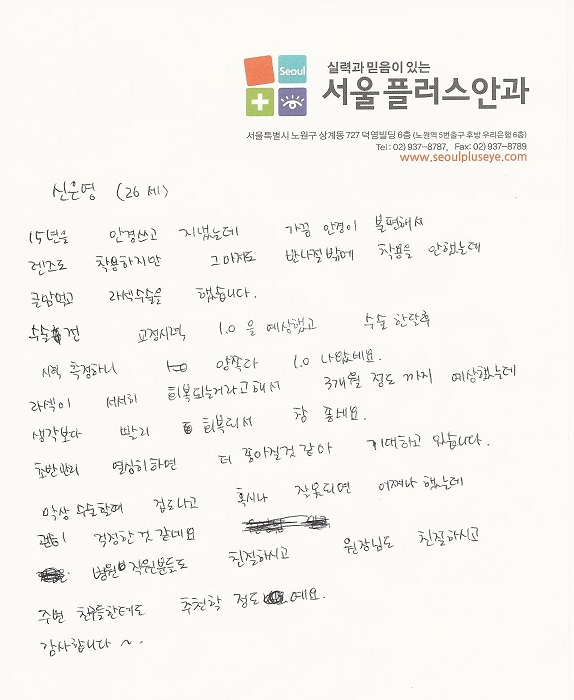 Seoul
실력과 믿음이 있는
서울 플러스안과
서울특별시 노원구 상계동 727 덕영빌딩 6층 (노원역 5번출구 후방 우리은행 6층)
Tel : 02) 937-8787, Fax: 02) 937-8789
www.seoulpluseye.com
신은영 (26세)
15년을 안경쓰고 지냈는데 가끔 안경이 불편해서
렌즈도 착용하지만 그마저도 반나절밖에 착용을 안했는데
큰맘먹고 라섹수술을 했습니다.
수술전 교정시력 1.0을 예상했고 수술 한달후
시력 측정하니 양쪽다 1.0 나왔네요.
라섹이 서서히 회복되는거라고해서 3개월 정도 까지 예상했는데
생각보다 빨리 회복되서 참 좋네요.
초반관리 열심히하면 더 좋아질것 같아 기대하고 있습니다.
막상 수술할때 겁도나고 혹시나 잘못되면 어쩌나 했는데
괜히 걱정한것 같네요
병원 직원분들도 친절하시고 원장님도 친절하시고
주변 친구들한테도 추천할 정도에요.
감사합니다 ~.